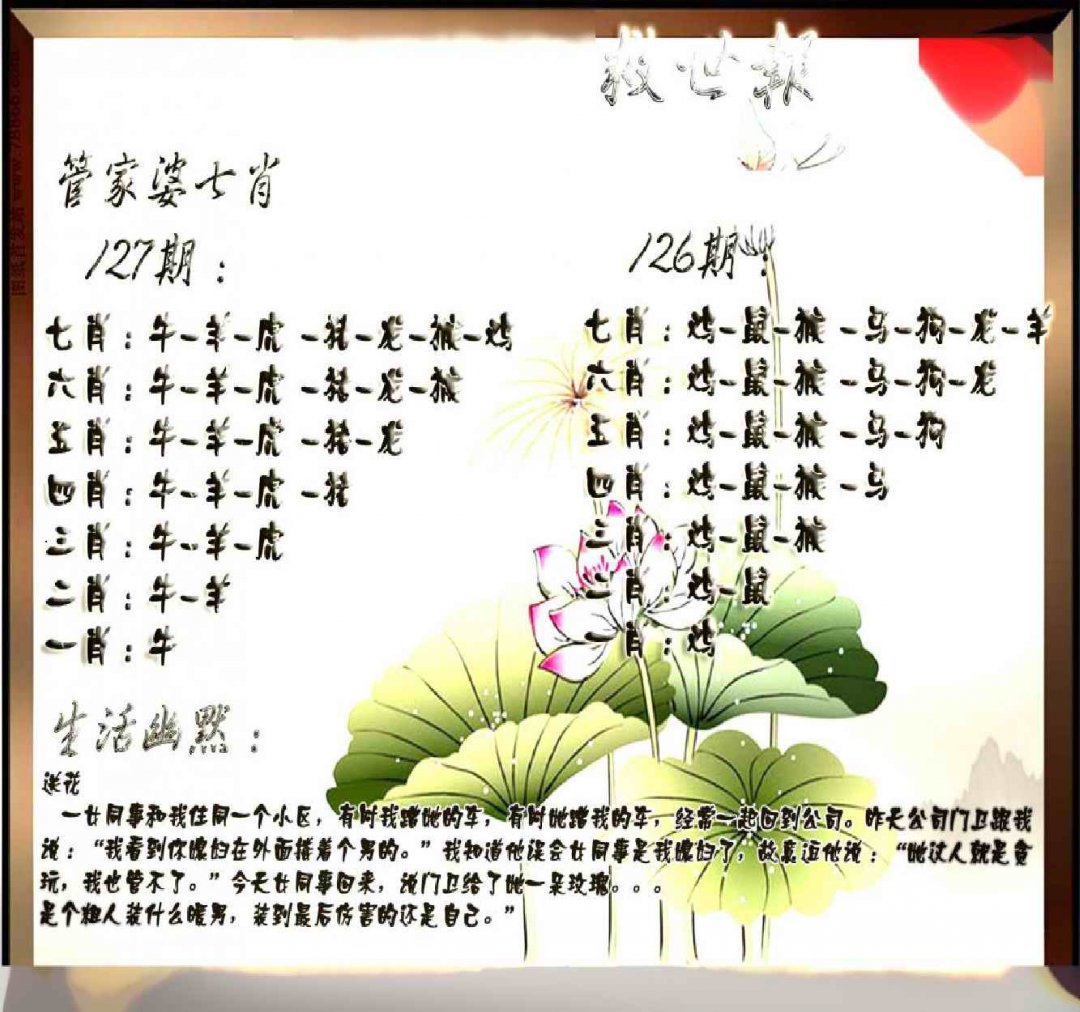 救世報
管家婆七肖
127期：
七肖：牛-羊-虎-猪-龙-猴-鸡
六肖：牛-羊-虎-猪-龙-猴
五肖：牛-羊-虎-猪-龙
四肖：牛-羊-虎-猪
三肖：牛-羊-虎
二肖：牛-羊
一肖：牛
126期：
七肖：鸡-鼠-猴-马-狗-龙-羊
六肖：鸡-鼠-猴-马-狗-龙
五肖：鸡-鼠-猴-马-狗
四肖：鸡-鼠-猴-马
三肖：鸡-鼠-猴
二肖：鸡-鼠
一肖：鸡
生活幽默：
送花
一女同事和我住同一个小区，有时我蹭她的车，有时她蹭我的车，经常一起回到公司。昨天公司门卫跟我
说：“我看到你媳妇在外面搂着个男的。”我知道他误会女同事是我媳妇了，故意逗他说：“她这人就是贪
玩，我也管不了。”今天女同事回来，说门卫给了她一朵玫瑰。。。
是个粗人装什么暖男，装到最后伤害的还是自己。”
图纸首发站